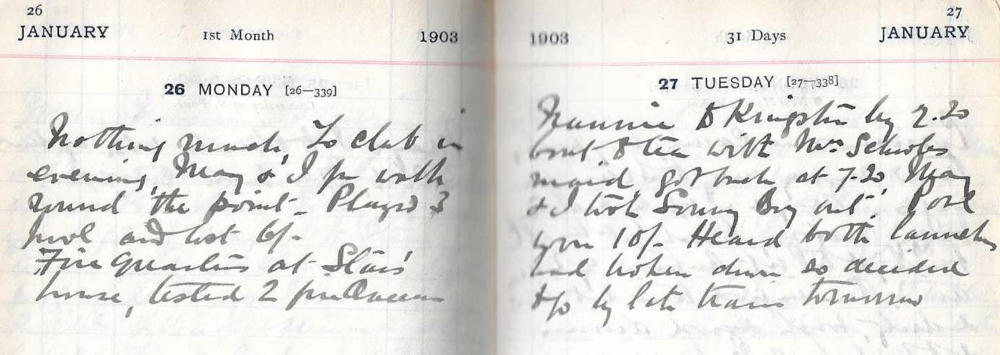 26
JANUARY 1st Month 1903
26 MONDAY [26—339]
Nothing much, To club in
evening, May & I for walk
round the point - Played 3
pool and lost 6/-
Fire Quarters at
house, tested 2
27
1903 31 Days JANUARY
27 TUESDAY [27—338]
Nannie to Kingston by 2.20
boat & tea with Mrs
maid, got back at 7.20, May
& I took Sonny Boy out. Pool
won 10/- Heard both launches
had broken down so decided
to go by late train tomorrow